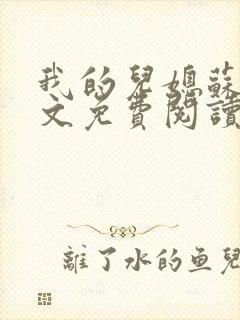 我的兒媳蘇
文免費閱讀
離了水的鱼兒